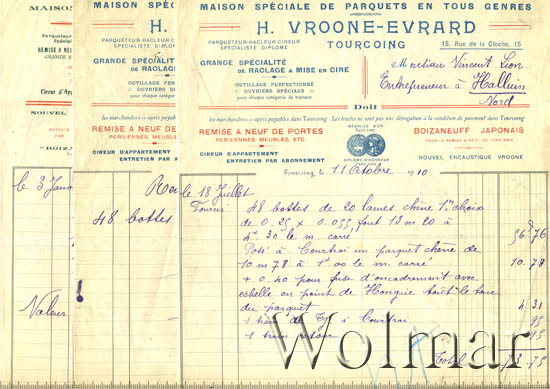 MAISON SPÉCIALE DE PARQUETS EN TOUS GENRES
H. VROONE-EVRARD
TOURCOING
PARQUETEUR-RACLEUR-CIREUR
SPÉCIALISTE DIPLOMÉ
15, Rue de la Cloche, 15
GRANDE SPÉCIALITÉ
DE RACLAGE & MISE EN CIRE
OUTILLAGE PERFECTIONNÉ
OUVRIERS SPÉCIAUX
pour chaque catégorie de travaux
Monsieur Vincent Lion
Entrepreneur à Halluin
Nord
Doit
les marchandises ci-après payables dans Tourcoing Les traites ne sont pas une dérogation à la condition de paiement dans Tourcoing
REMISE A NEUF DE PORTES
PERSIENNES, MEUBLES, ETC.
CIREUR D'APPARTEMENT
ENTRETIEN PAR ABONNEMENT
MÉDAILLE D'OR
DIPLOME D'HONNEUR
BOIZANEUFF JAPONAIS
POUR LA REMISE A NEUF DE TOUS BOIS
NOUVEL ENCAUSTIQUE VROONE
Tourcoing, 11 Octobre 1910
le 18 Juillet
Fourni 48 bottes de 20 lames chêne 1er choix
de 0,25 x 0.055, font 13 m 20 à
4f 30 le m. carré 56 76
Posé à Courtrai un parquet chêne de
10 m 78 à 1f 00 le m. carré 10 78
+ 0,40 pour frise d'encadrement avec
échelle en point de Hongrie tout le tour
du parquet 4 31
1 train de Tg à Courtrai 95
1 train retour 95
Total 73 75
MAISON SPÉCIALE DE P
H.
PARQUETEUR-RACLEUR-CIREUR
SPÉCIALISTE DIPLOMÉ
GRANDE SPÉCIALITÉ
DE RACLAG
OUTILLAGE
OUVRIERS
pour chaque catég
les marchandises ci-ap
REMISE A NEUF
PERSIENNES, M
CIREUR D'APPARTEMENT
ENTRETIEN PAR
48 bottes
MAISON
Parqueteur
Spécial
REMISE A NEUF
GRANDE S
Cireur d'App
NOUVEL
"BOIZ
le 3 Janv
Valeur
Wolmar